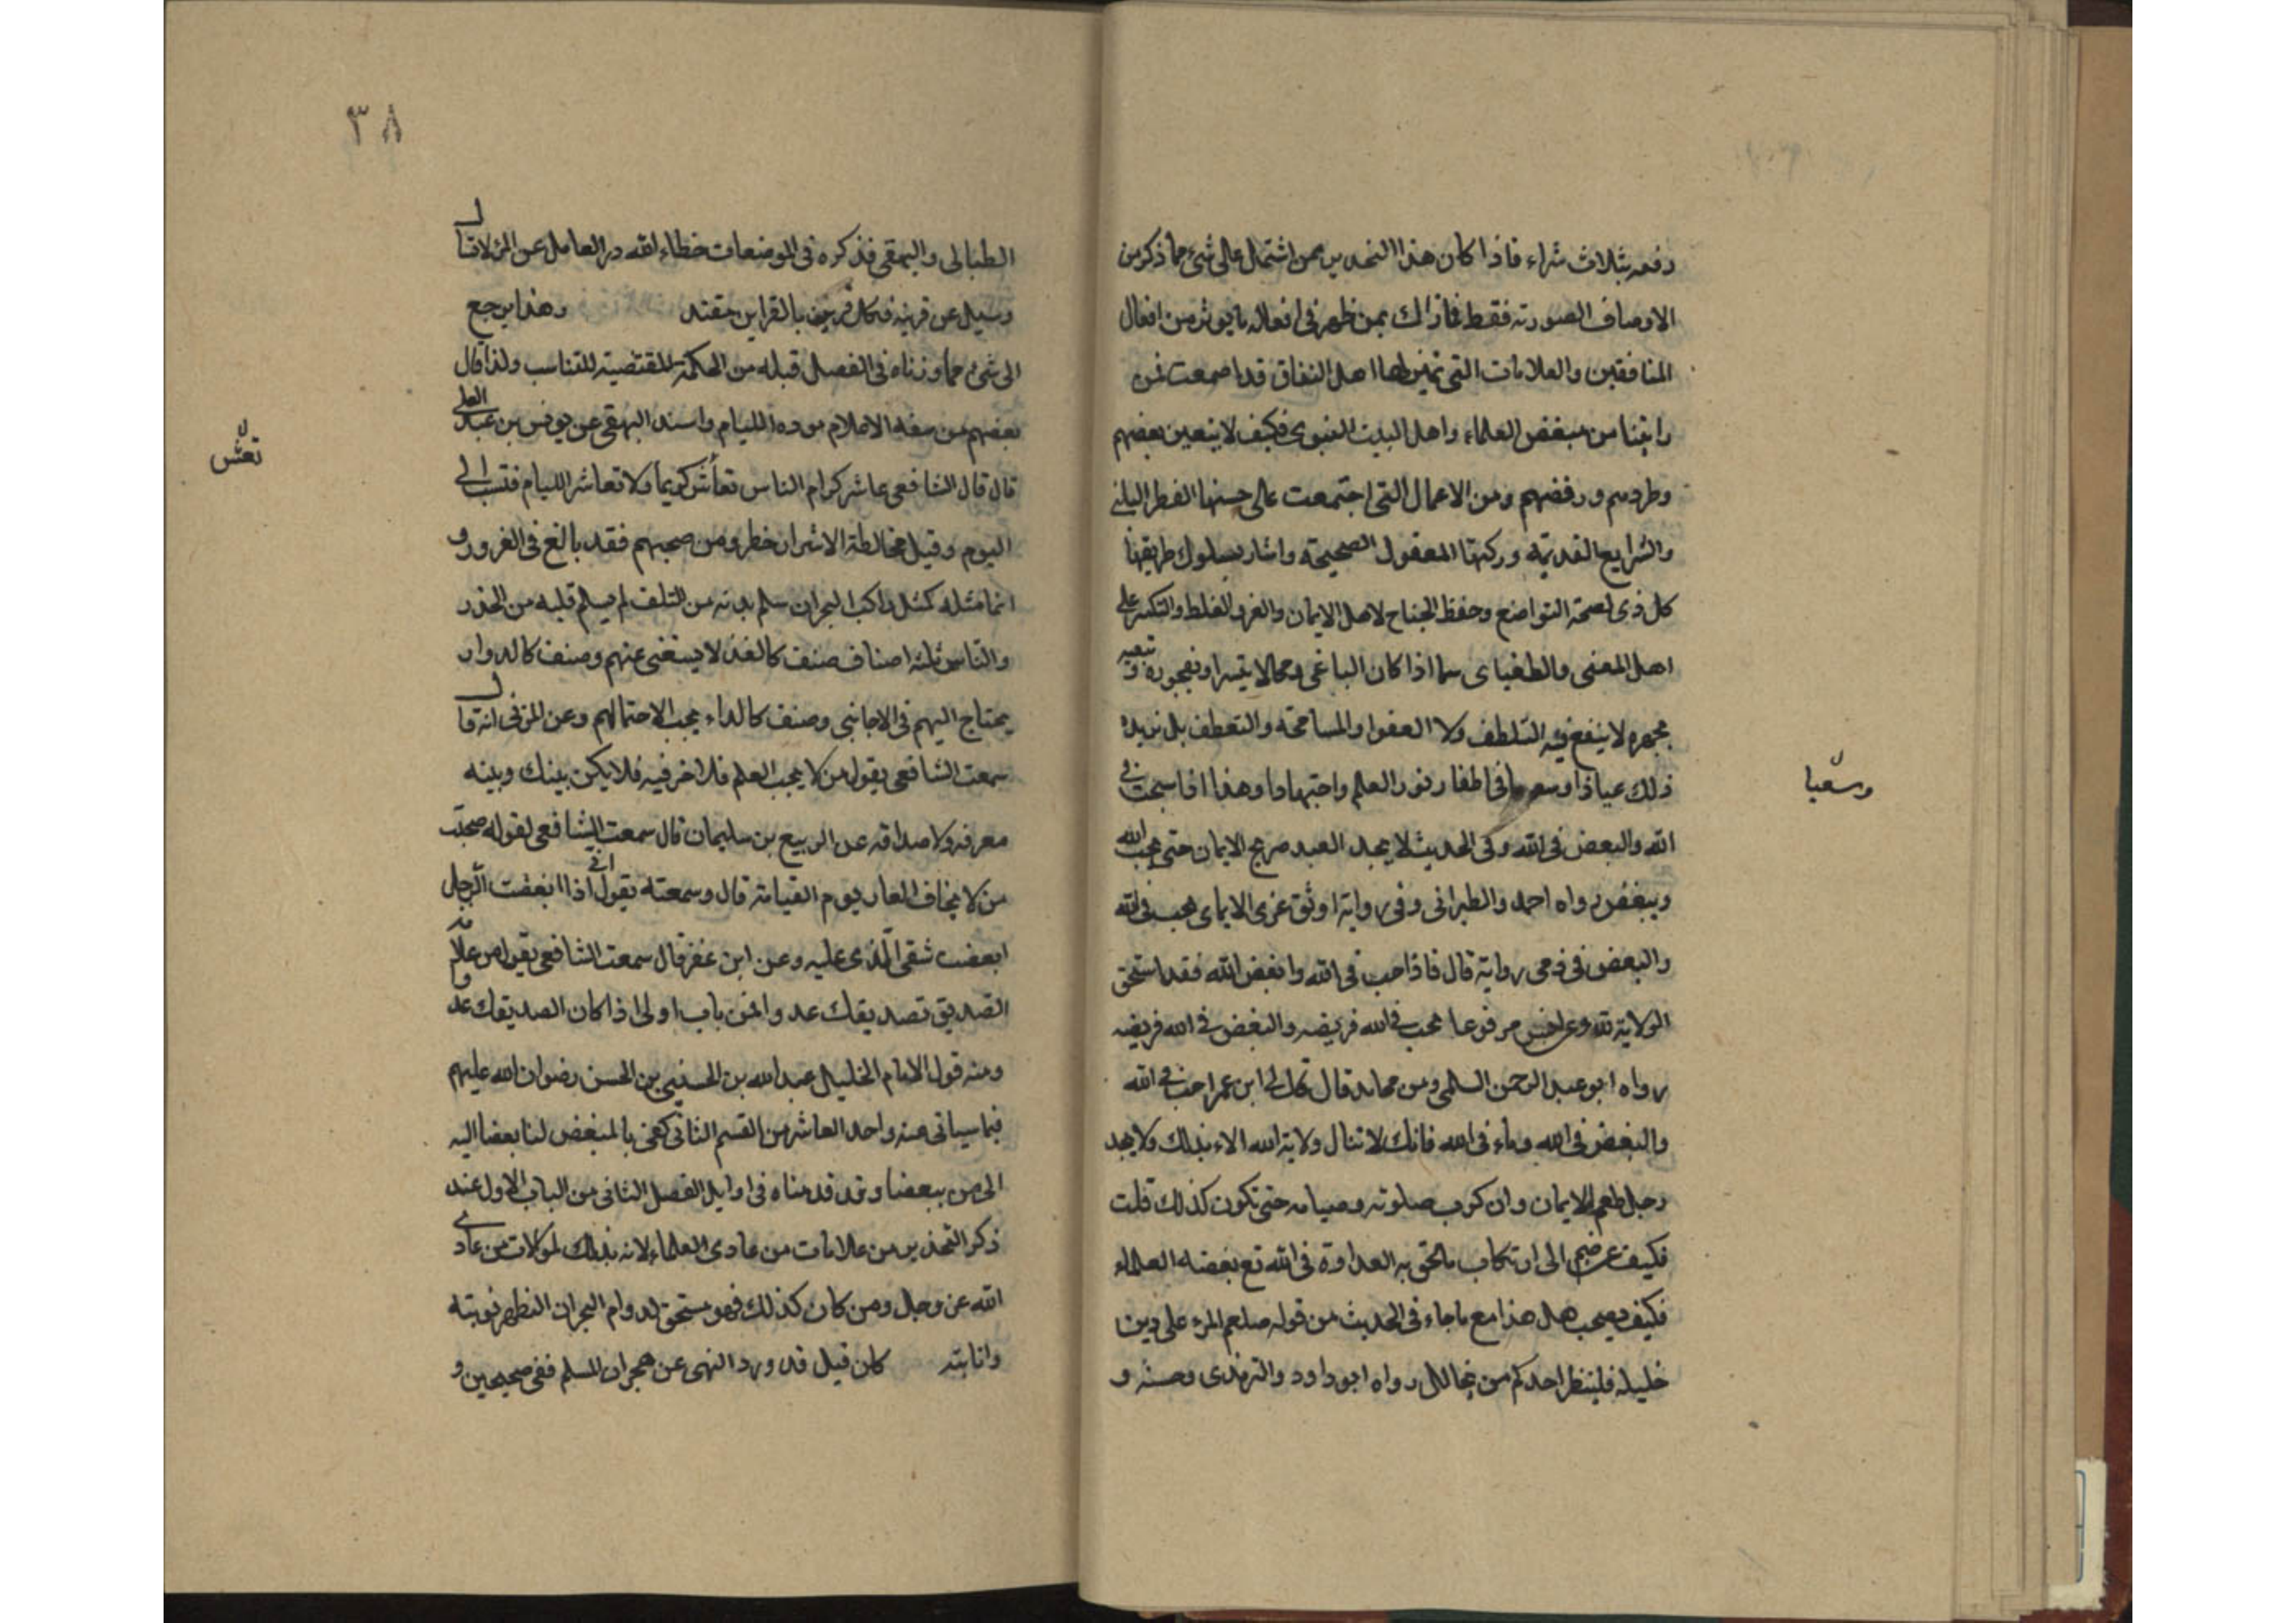 دفعه بثلاث شراء فاذا كان هذا التحذير ممن اشتمل على شيء مما ذكر من
الاوصاف الصورته فقط فما ذالك بمن ظهر في افعاله ما يوثر من افعال
المنافقين والعلامات التي تميز بها اهل النفاق قد اجمعت من
راينا من مبغض العلماء واهل البيت النبوى فكيف لا يتعين بعضهم
وطردهم ورفضهم ومن الاعمال التي اجتمعت على حسنها الفطر
والشرايع القديمة وركبتها العقول الصحيحة واشار بسلوك طريقها
كل ذى نصحة التواضع وحفظ الجناح لاهل الايمان والغر الغلط والتكبر على
اهل المعنى والطغياى سما اذا كان الباغى
لا ينفع فيه التلطف ولا العفو او المسامحة والتعطف بل نريده
ذلك عياذا وسعيا فى اطفا نور العلم واجتهادا وهذا
الله والبعض فى الله وفى الحديث لا يجد العبد صريح الايمان حتى يحب الله
ويبغض رواه احمد والطبرانى وفى رواية اوثق عرى الايماى الحب فى الله
والبعض فى رواية قال فاذا احب فى الله وابغض الله فقد استحق
الولاية لله مرفوعا الحب فى الله فريضه والبغض فى الله فريضه
رواه ابو عبد الرحمن السلمى وعن مجاهد قال قال لى ابن عمر احب فى الله
والبغض فى الله وعاد فى الله فانك لا تنال ولاية الله الا بذلك ولا يجد
رجل طعم الايمان وان كثرت صلوته وصيامه حتى تكون كذلك قلت
فكيف الى ارتكاب ما تحق به العداوة فى الله مع بغضه العلماء
فكيف يصحب هل هذا مع ما جاء فى الحديث من قوله صلعم المرء على دين
خليله فلينظر احدكم من يخالل رواه ابو داود والترمذى وحسنه و
وسعيا
٣٨
والبيهقى فذكره فى الموضعات خطاء لله در العامل عن المرء لا تسال
وسيل عن قرينه فكل قرين بالقراين مقتد وهذا يرجع
الى شيء مما وزناه فى الفصل قبله من الحكمة المقتضية للتناسب ولذا قال
بعضهم من سفه الاعلام موده الليام واسند البهقى عن يونس بن عبد العلى
قال قال الشافعى عاشر كرام الناس تعاش كريما ولا تعاشر الليام فتنسب الى
اليوم وقيل مخالطة الاشرار خطر ومن صحبهم فقد بالغ فى الغرور و
انما مثله كمثل راكب البحر ان سلم بدنه من التلف لم يسلم قلبه من الحذر
والناس ثلثه اصناف صنف كالغذ لا يستغنى عنهم وصنف كالدوار
يحتاج اليهم فى الاجانبى وصنف كالداء يجب الاحتمالهم وعن المزنى انه قال
سمعت الشافعى يقول من لا يحب العلم فلا خر فيه فلا يكن بينك وبينه
معرفه ولا صداقه عن الربيع بن سليمان قال سمعت الشافعى لقوله صحبة
من لا يخاف العار يوم القيامة قال وسمعته يقول انى اذا ابغضت الرجل
ابعضت شقى الذى عليه وعن ابن عفر قال سمعت الشافعى يقول من علامة
الصديق تصديقك عدو ومن باب اولى اذا كان الصديقك عدو
ومنه قول الامام الخليل عبد الله بن الحسنين بن الحسن رضوان الله عليهم
فيما سياتى عنه واحد العاشر من القسم الثانى كفى بالمبغض لنا بعضا اليه
الى من يبعضنا وقد قدمناه فى اوايل الفصل الثانى من الباب الاول عند
ذكر التحذير من علامات من عادى العلماء لانه بذلك من عادى
الله عز وجل ومن كان كذلك فهو مستحق لدوام الهجران الى ظهر توبته
وانابته فان قيل قد ورد النهى عن هجران المسلم ففى صحيحين و
تعش